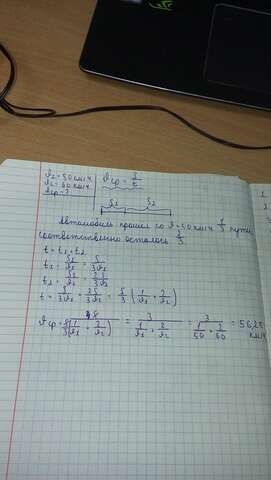 ϑ₁=50 км/ч
ϑ₂=60 км/ч
ϑср-?
ϑср = S/t
S₁ S₂
Автомобиль прошел со ϑ=50 км/ч 1/3 пути
соответственно осталось 2/3
t = t₁+t₂
t₁ = S₁/ϑ₁ = S/3ϑ₁
t₂ = S₂/ϑ₂ = 2S/3ϑ₂
t = S/3ϑ₁ + 2S/3ϑ₂ = S/3 (1/ϑ₁ + 2/ϑ₂)
ϑср = S/(S/3(1/ϑ₁ + 2/ϑ₂)) = 3/(1/ϑ₁ + 2/ϑ₂) = 3/(1/50 + 2/60) = 56,25
км/ч